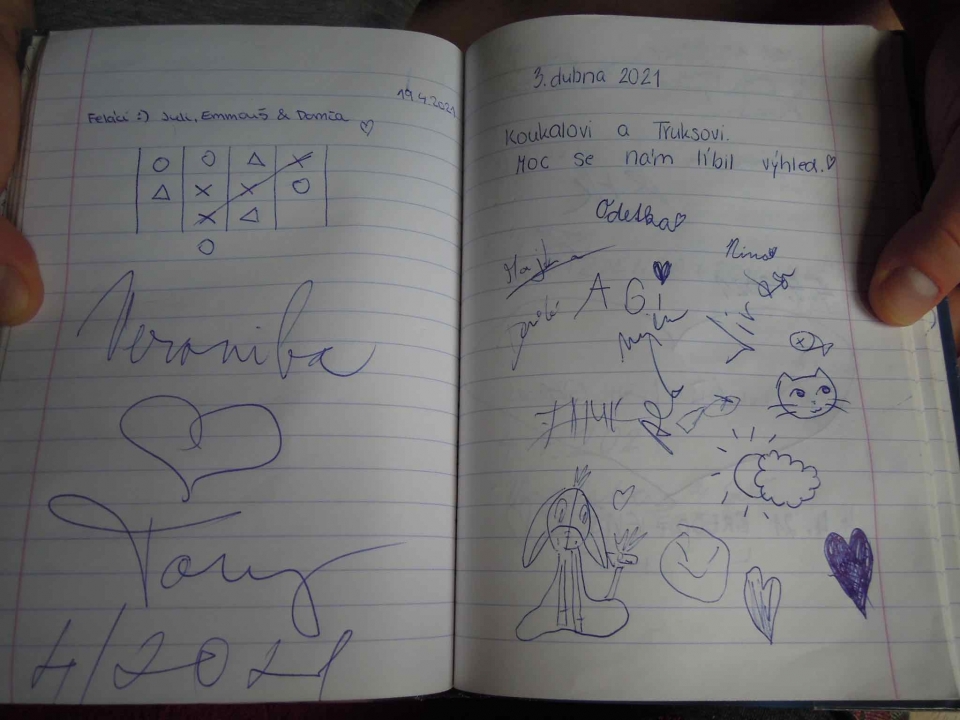 19.4.2021
Feláci :) Juli, Emmouš & Domča
Veronika
Tony
4/2021
3. dubna 2021
Koukalovi a Truksovi.
Moc se nám líbil výhled.
Odetka
Nina
AGI